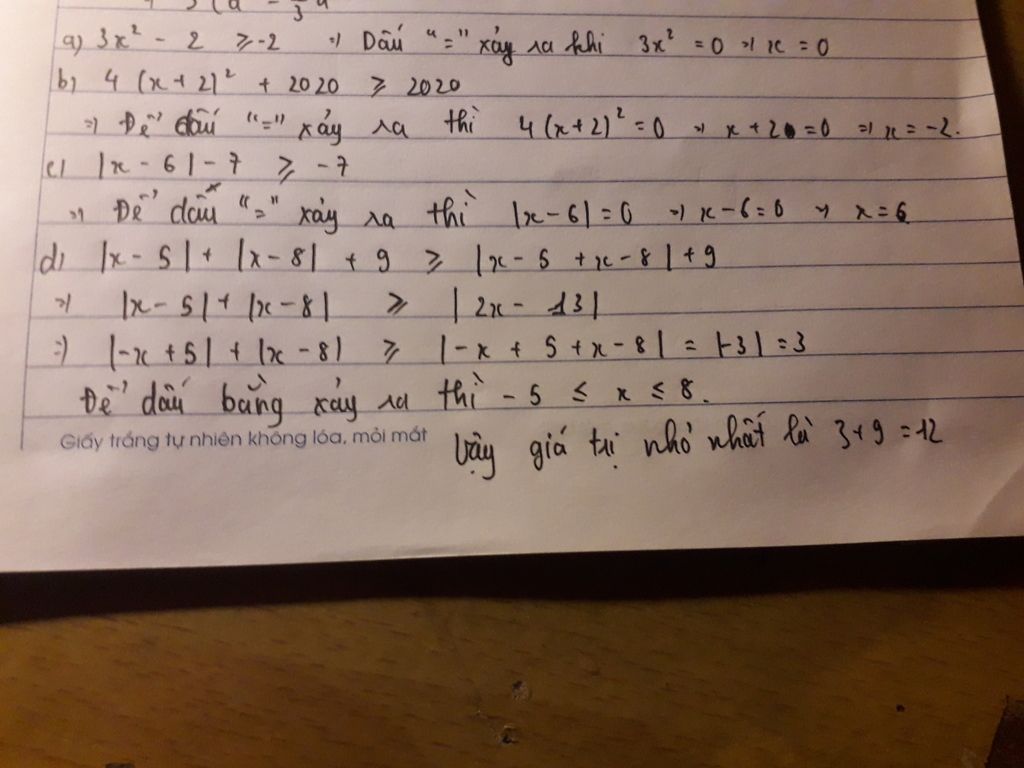 a) 3x² - 2 ≥ -2 => Dấu "=" xảy ra khi 3x² = 0 => x = 0
b) 4 (x + 2)² + 2020 ≥ 2020
=> Để dấu "=" xảy ra thì 4(x+2)² = 0 => x + 2 = 0 => x = -2.
c) |x - 6| - 7 ≥ -7
=> Để dấu "=" xảy ra thì |x - 6| = 0 => x - 6 = 0 => x = 6
d) |x - 5| + |x - 8| + 9 ≥ |x - 5 + x - 8| + 9
=> |x - 5| + |x - 8| ≥ |2x - 13|
=> |-x + 5| + |x - 8| ≥ |-x + 5 + x - 8| = |-3| = 3
Để dấu bằng xảy ra thì - 5 ≤ x ≤ 8.
Giấy trắng tự nhiên không lóa, mỏi mắt
Vậy giá trị nhỏ nhất là 3 + 9 = 12